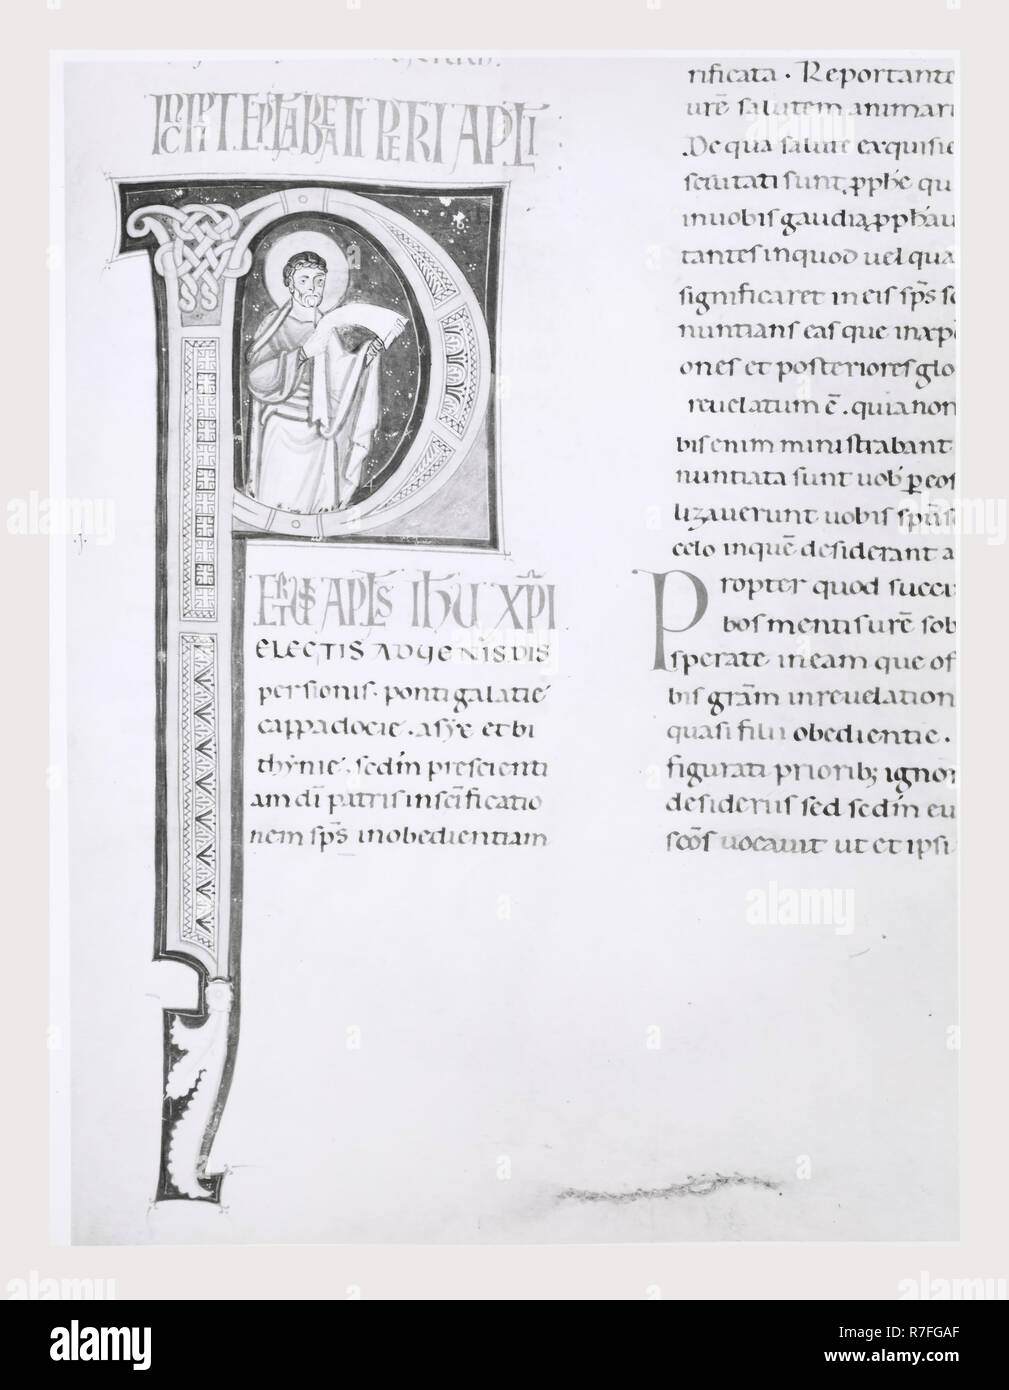 INCIPIT EPLA BEATI PETRI APLI
PETRUS APLS IHU XPI
ELECTIS ADVENIS DIS
persionis. ponti galatie
cappadocie. asye et bi
thynie. sedm prescienti
am di patris inscificatio
nem sps inobedientiam
rificata. Reportante
ure salutem animar
De qua salute exquisie
scrutati sunt pphe qu
inuobis gaudia pphau
tantes inquod uel qua
significaret in eis sps
nuntians eas que inxp
ones et posteriores glo
reuelatum e. quia non
bis enim ministrabant
nuntiata sunt uob peos
lizauerunt uobis spu
celo inque desiderant a
Propter quod succi
bos mentis ure sob
sperate ineam que of
bis gram inreuelation
quasi filii obedientie.
figurati priorib; ignor
desideriis sed sedm eu
scos uocauit ut et ipsi
alamy
Image ID: R7FGAF
www.alamy.com